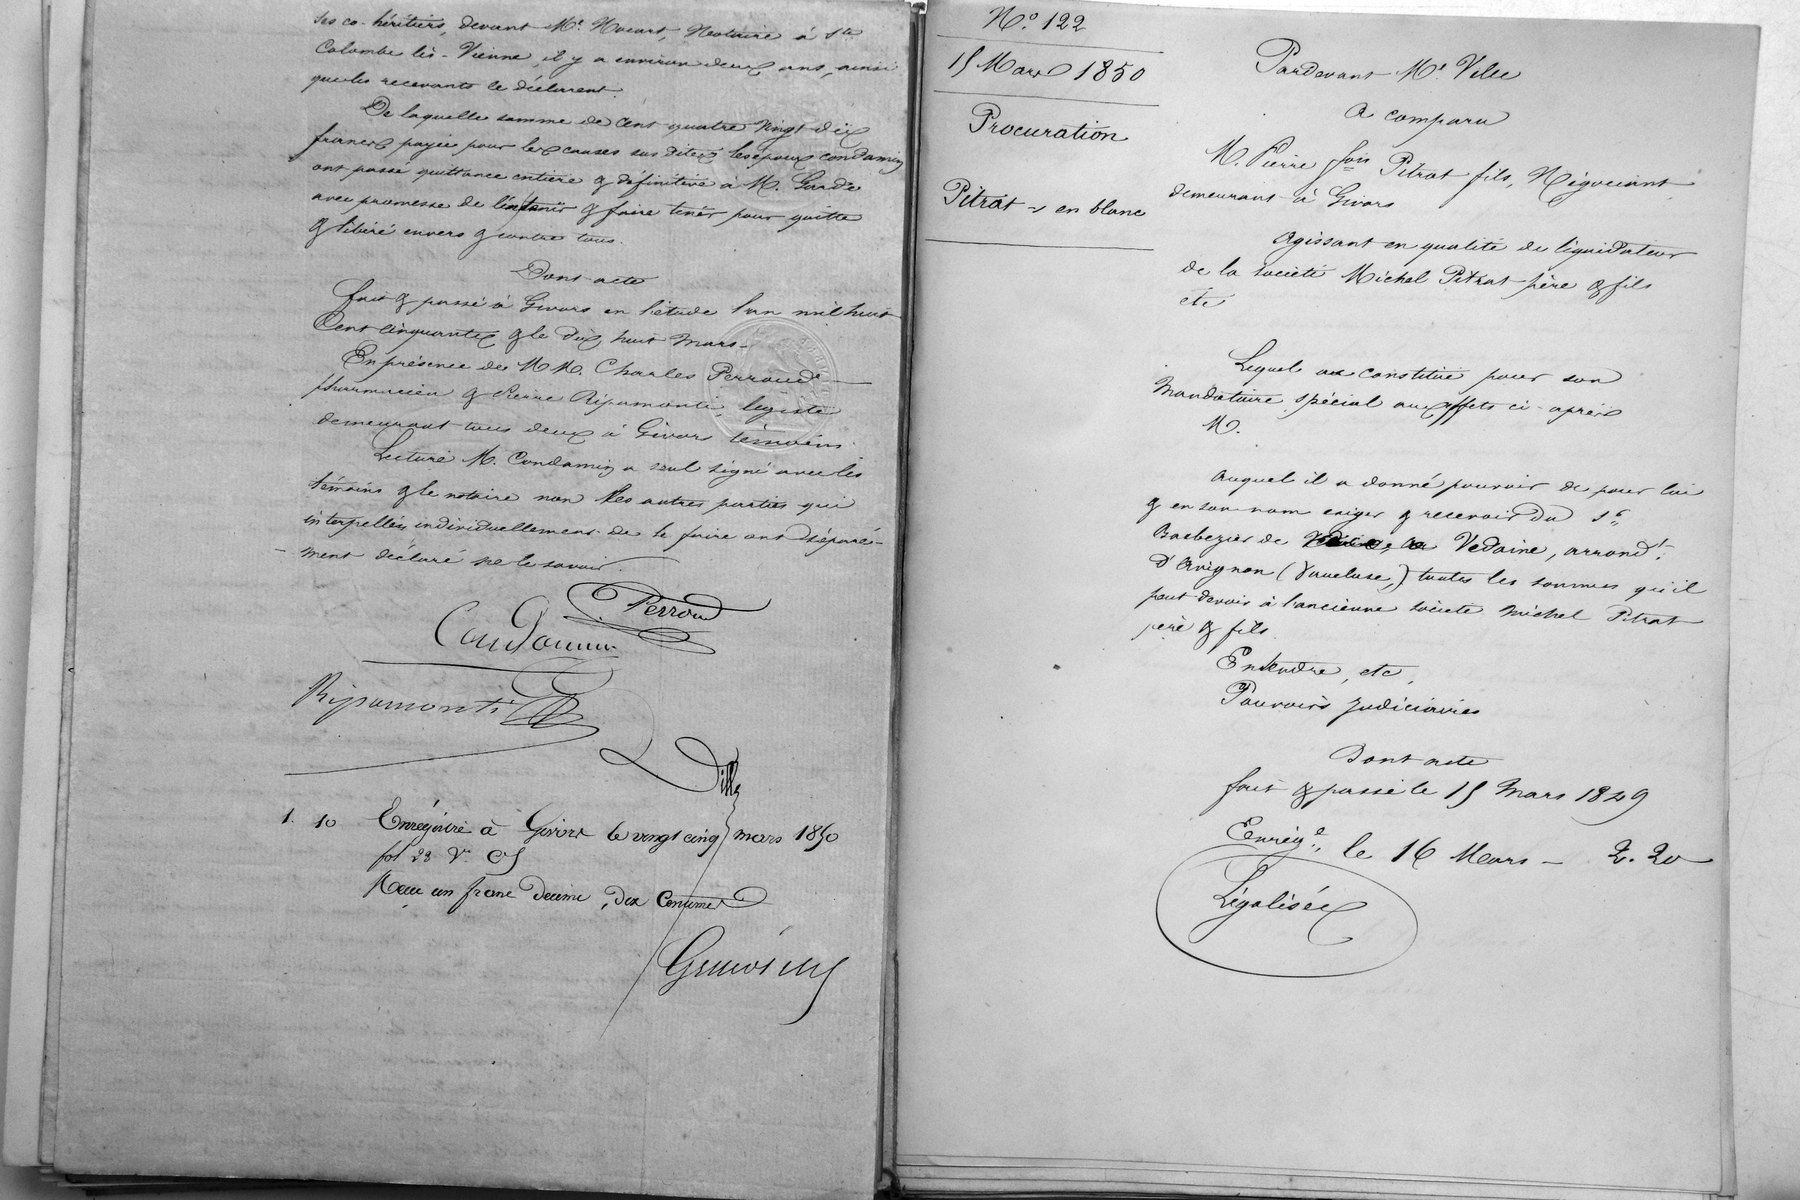 ses co-héritiers, devant Me Nocart, Notaire à Ste
Colombe lès-Vienne, il y a environ deux ans, ainsi
que les recevants le déclarent.
De laquelle somme de cent quatre vingt dix
francs payée pour les causes sus dites, les époux Condamin
ont passé quittance entière & définitive à M. Garde
avec promesse de l'en tenir & faire tenir pour quitte
& libéré envers & contre tous.
Dont acte
fait & passé à Givors en l'étude l'an mil huit
Cent cinquante & le dix huit Mars.
En présence de MM. Charles Perroud
pharmacien & Pierre Ripamonti, légiste
demeurant tous deux à Givors témoins.
Lecture M. Condamin a seul signé avec les
témoins & le notaire non les autres parties qui
interpellées individuellement de le faire ont séparé-
-ment déclaré ne le savoir.
Perroud
Condamin
Ripamonti
Ville
1. 10 Enregistré à Givors le vingt cinq mars 1850
fol 23 Vo C5
Reçu un franc décime, dix centimes
No. 122
15 Mars 1850
Procuration
Pitrat - en blanc
Pardevant Me Ville
A comparu
M. Pierre fois Pitrat fils, Négociant
demeurant à Givors
Agissant en qualité de liquidateur
de la société Michel Pitrat père & fils
etc
Lequel a constitué pour son
Mandataire spécial aux effets ci-après
M.
Auquel il a donné pouvoir de pour lui
& en son nom exiger & recevoir du Sr
Barbezier de Vedaine, arrondt
d'Avignon (Vaucluse,) toutes les sommes qu'il
peut devoir à l'ancienne société Michel Pitrat
père & fils.
Entendre, etc.
Pouvoirs judiciaires
Dont acte
fait & passé le 15 Mars 1849
Enregé le 16 Mars - 2.20
Légalisée